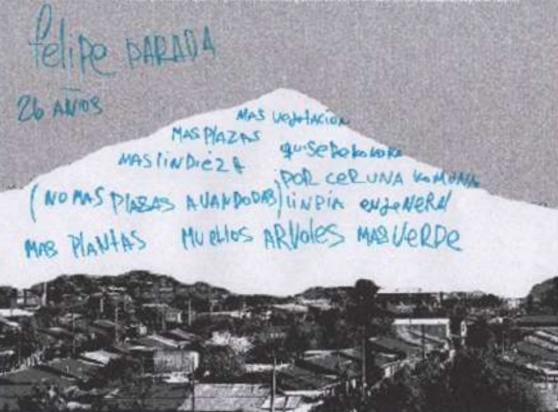 felipe PARADA
26 AÑOS
MAS vegetacion
MAS PlAZAS
MAS linDiezA
PoR CeR UNA KOMUNA
(NO MAS PlAsAS AVANDODAS) liNPiA enJeNeRAl
MAS PlANtAS MUCHOS ARVoles MAS VeRDe